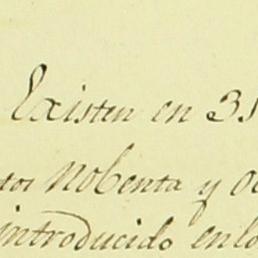 Existen en 31
tos Nobenta y oc
introducido en lo